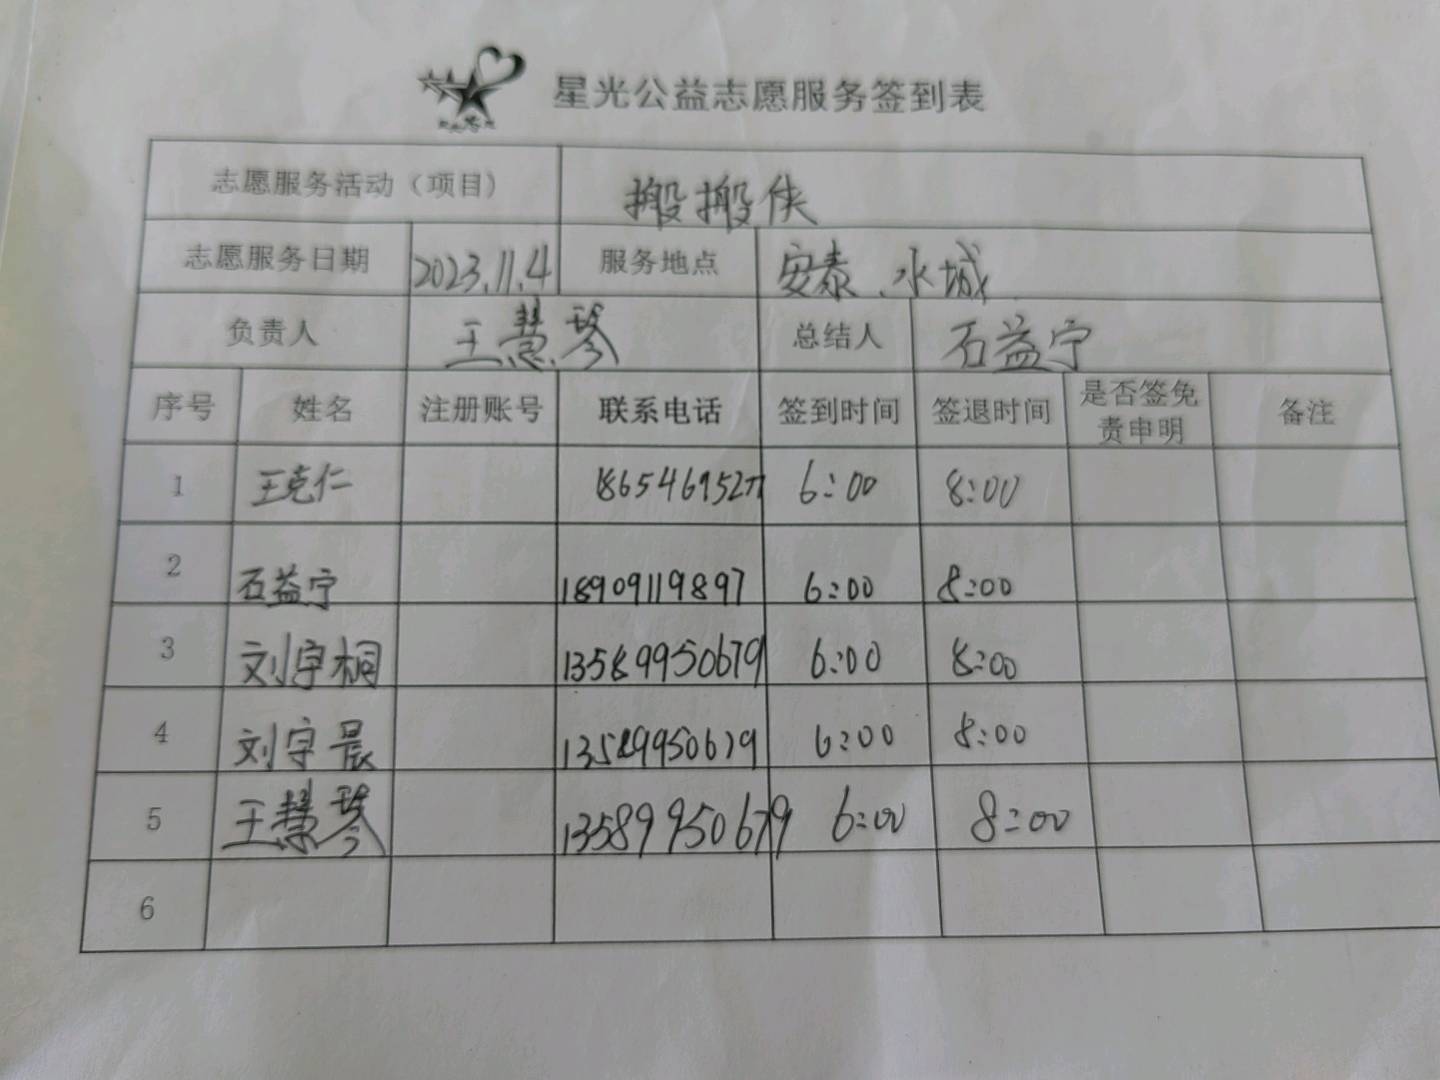 星光公益志愿服务签到表
志愿服务活动（项目） 搬搬侠
志愿服务日期 2023.11.4 服务地点 安泰、水城
负责人 王慧琴 总结人 石益宁
序号 姓名 注册账号 联系电话 签到时间 签退时间 是否签免责申明 备注
1 王克仁 6:00 8:00
2 石益宁 18909119897 6:00 8:00
3 刘宇桐 13589950679 6:00 8:00
4 刘宇晨 13589950679 6:00 8:00
5 王慧琴 13589950679 6:00 8:00
6